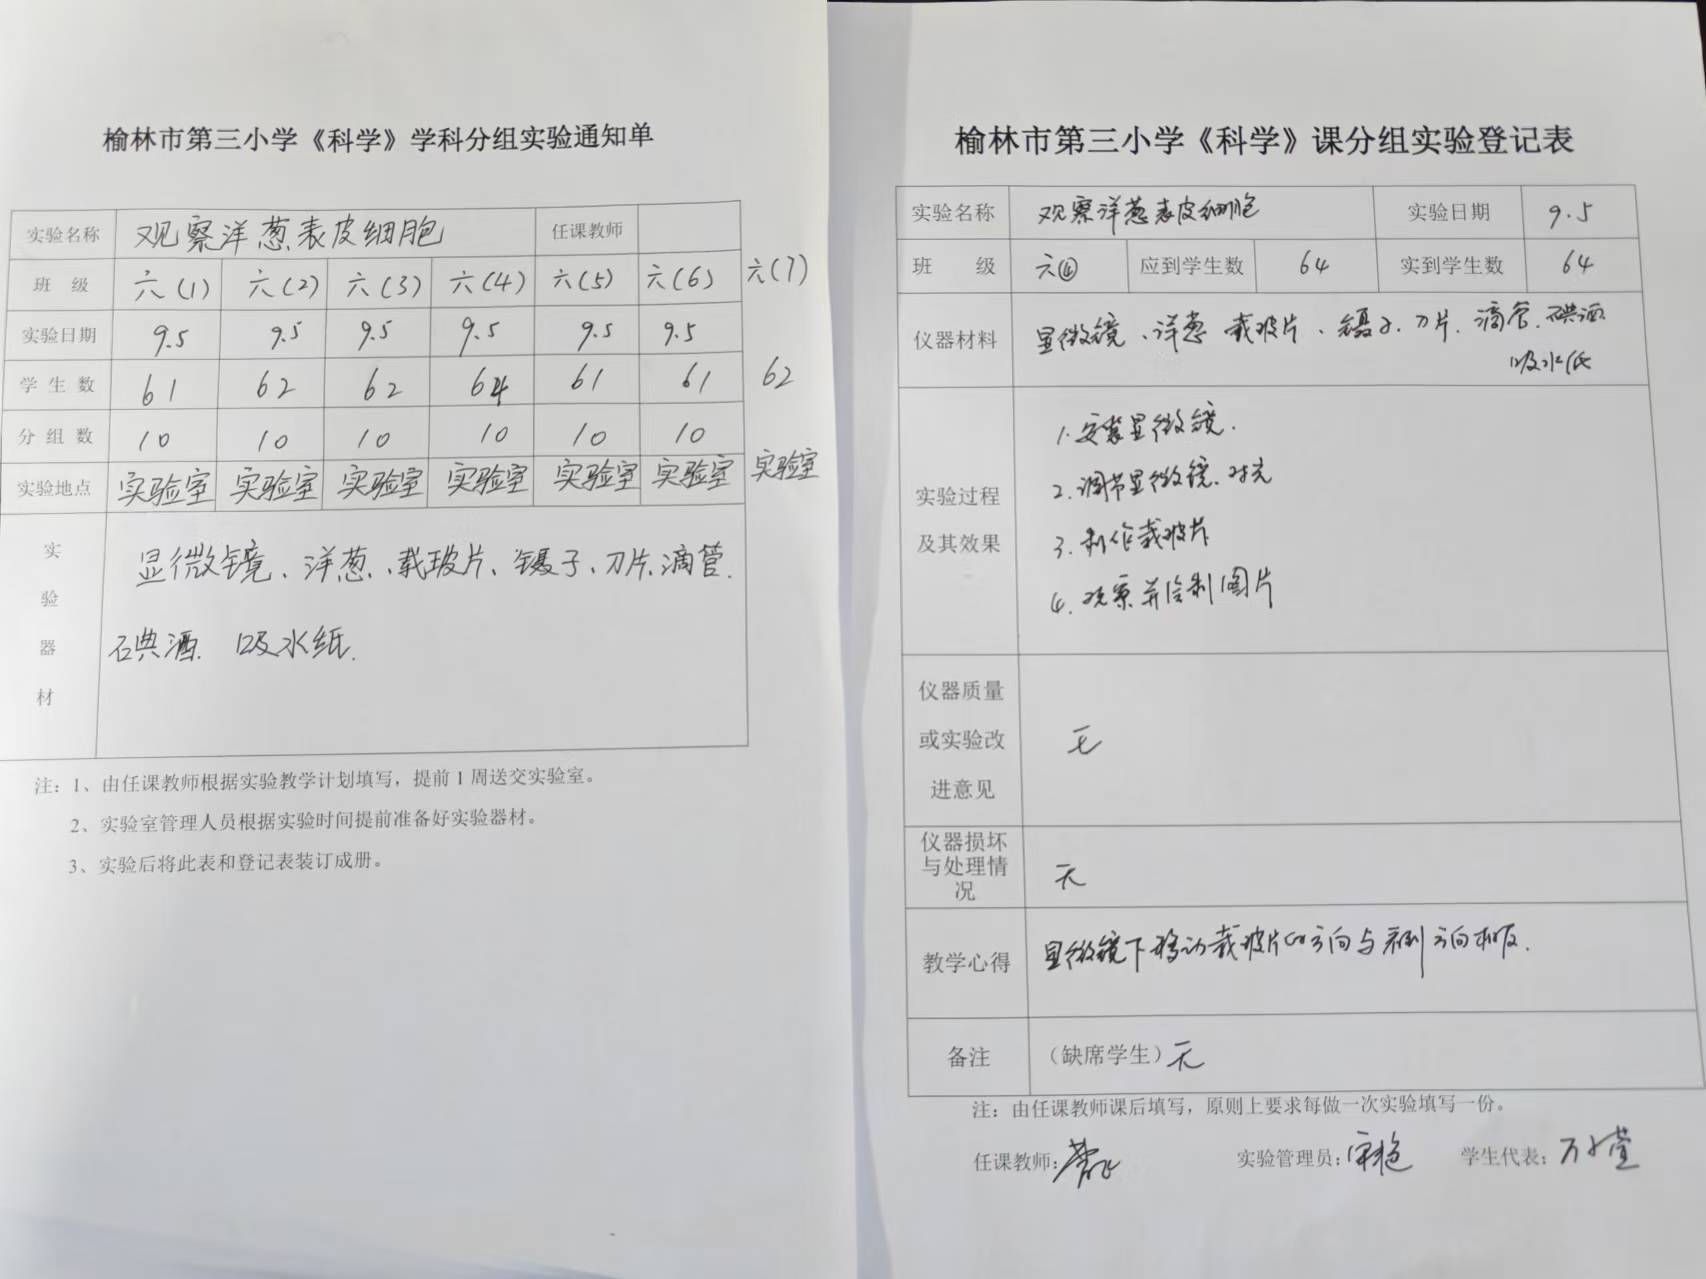 榆林市第三小学《科学》学科分组实验通知单
实验名称 观察洋葱表皮细胞 任课教师
班 级 六(1) 六(2) 六(3) 六(4) 六(5) 六(6) 六(7)
实验日期 9.5 9.5 9.5 9.5 9.5 9.5
学 生 数 61 62 62 64 61 61 62
分 组 数 10 10 10 10 10 10
实验地点 实验室 实验室 实验室 实验室 实验室 实验室 实验室
实验器材 显微镜、洋葱、载玻片、镊子、刀片、滴管.
碘酒. 吸水纸.
注：1、由任课教师根据实验教学计划填写，提前1周送交实验室。
2、实验室管理人员根据实验时间提前准备好实验器材。
3、实验后将此表和登记表装订成册。
榆林市第三小学《科学》课分组实验登记表
实验名称 观察洋葱表皮细胞 实验日期 9.5
班 级 六④ 应到学生数 64 实到学生数 64
仪器材料 显微镜、洋葱 载玻片、镊子、刀片、滴管、碘酒
吸水纸
实验过程及其效果
1.安装显微镜.
2.调节显微镜.对光
3.制作载玻片
4.观察并绘制图片
仪器质量或实验改进意见 无
仪器损坏与处理情况 无
教学心得 显微镜下移动载玻片的方向与 方向相反.
备注 （缺席学生）无
注：由任课教师课后填写，原则上要求每做一次实验填写一份。
任课教师: 实验管理员: 学生代表: